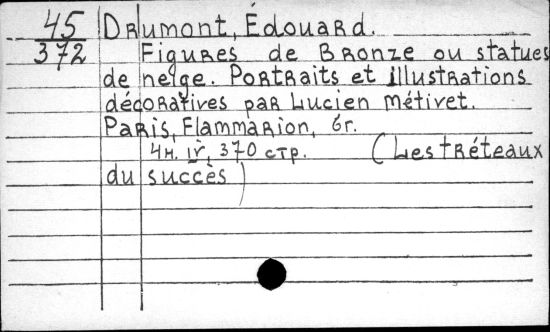 45
372
Drumont, Édouard.
Figures de Bronze ou statues
de neige. Portraits et illustrations
décoratives par Lucien Métivet.
Paris, Flammarion, бг.
4н. IV, 370 стр. (Les tréteaux
du succès)